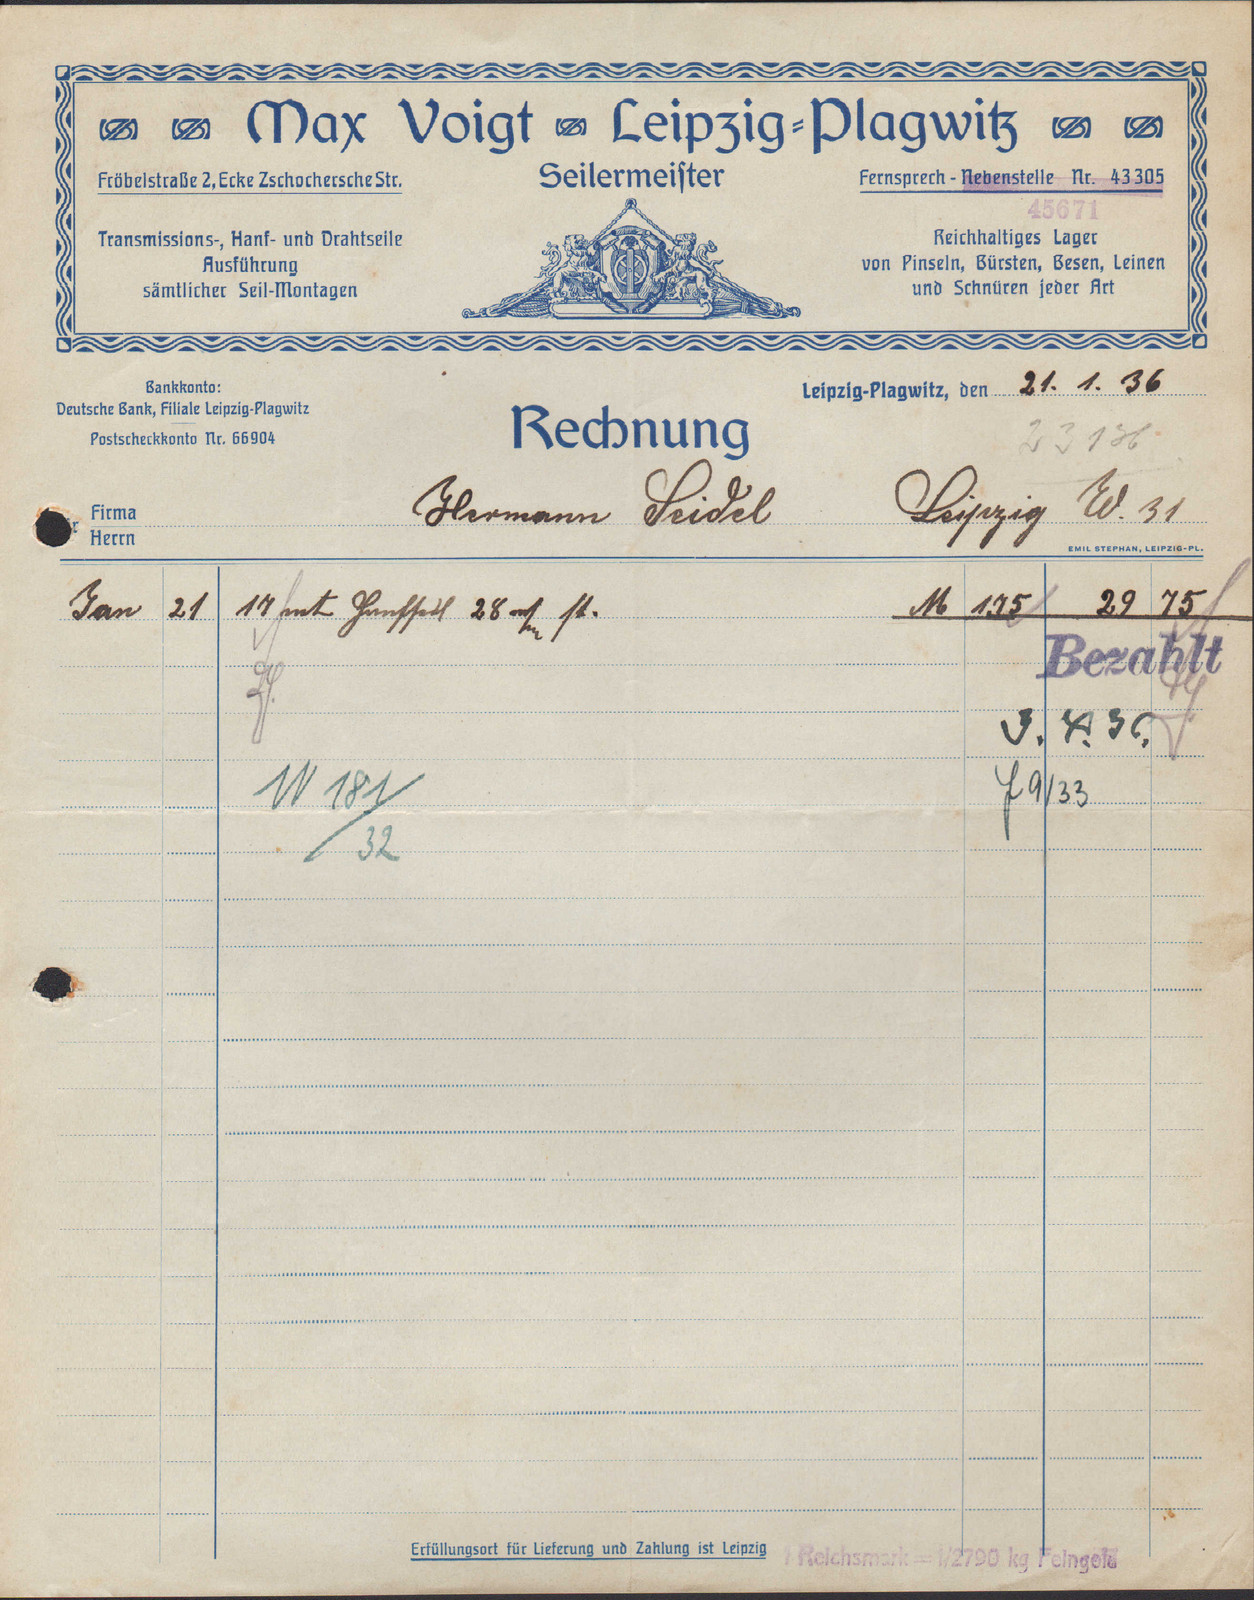 Max Voigt Leipzig=Plagwitz
Fröbelstraße 2, Ecke Zschochersche Str.
Seilermeister
Fernsprech-Nebenstelle Nr. 43305
45671
Transmissions-, Hanf- und Drahtseile
Ausführung
sämtlicher Seil-Montagen
Reichhaltiges Lager
von Pinseln, Bürsten, Besen, Leinen
und Schnüren jeder Art
Bankkonto:
Deutsche Bank, Filiale Leipzig-Plagwitz
Postscheckkonto Nr. 66904
Leipzig-Plagwitz, den 21. 1. 36
Rechnung
23 1 36
Firma
Herrn
Hermann Seidel Leipzig W. 31
EMIL STEPHAN, LEIPZIG-PL.
Jan 21 17 mt Hanfseil 28 m/m st. M 175 29 75
Bezahlt
3. 4. 36.
W 181/32
9/33
Erfüllungsort für Lieferung und Zahlung ist Leipzig
1 Reichsmark = 1/2790 kg Feingold